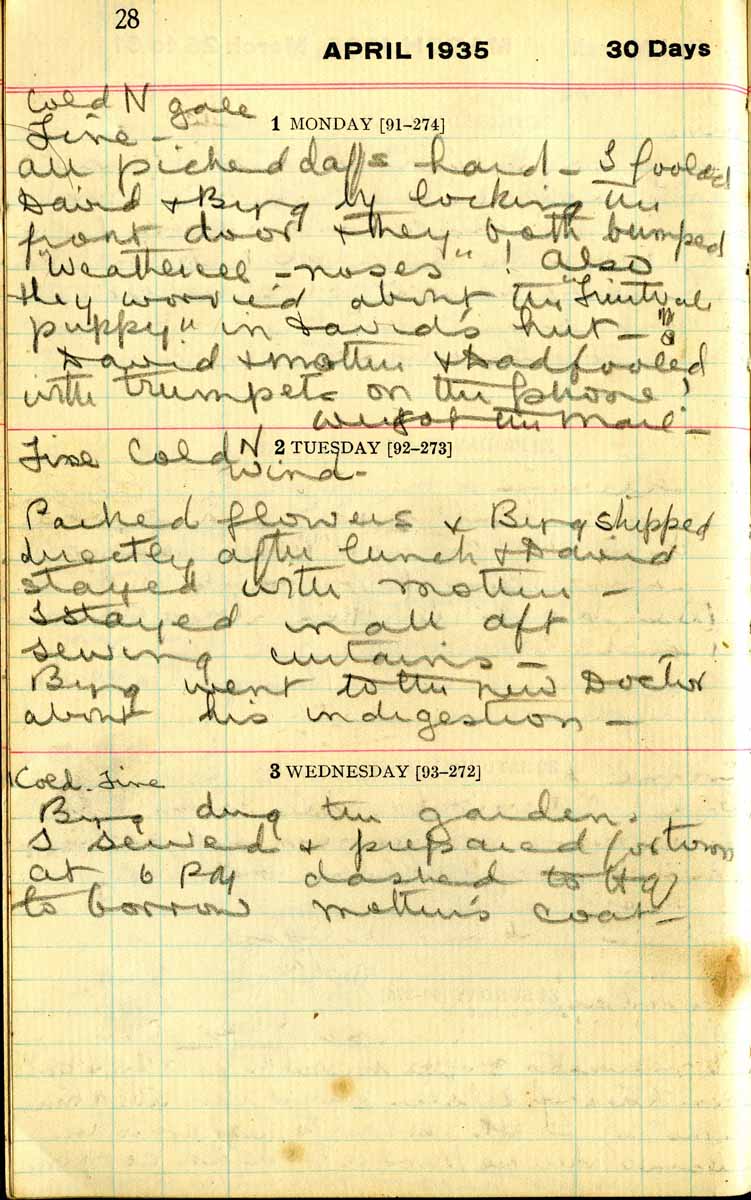 28
APRIL 1935 30 Days
Cold N gale
1 MONDAY [91–274]
Fine –
all picked daffs hard – I fooled
David & Byng by locking the
front door & they both bumped
" – noses" ! Also
they worried about the
puppy" in David's hut –
David & Mother & Dad fooled
with trumpets on the phone!
We got the Mail –
2 TUESDAY [92–273]
Fine Cold N
wind –
Packed flowers & Byng shipped
directly after lunch & David
stayed with Mother –
I stayed in all aft
sewing curtains –
Byng went to the new Doctor
about his indigestion –
3 WEDNESDAY [93–272]
Cold. Fine
Byng dug the garden.
I sewed & prepared for town
at 6 PM dashed to Hq
to borrow Mother's coat –